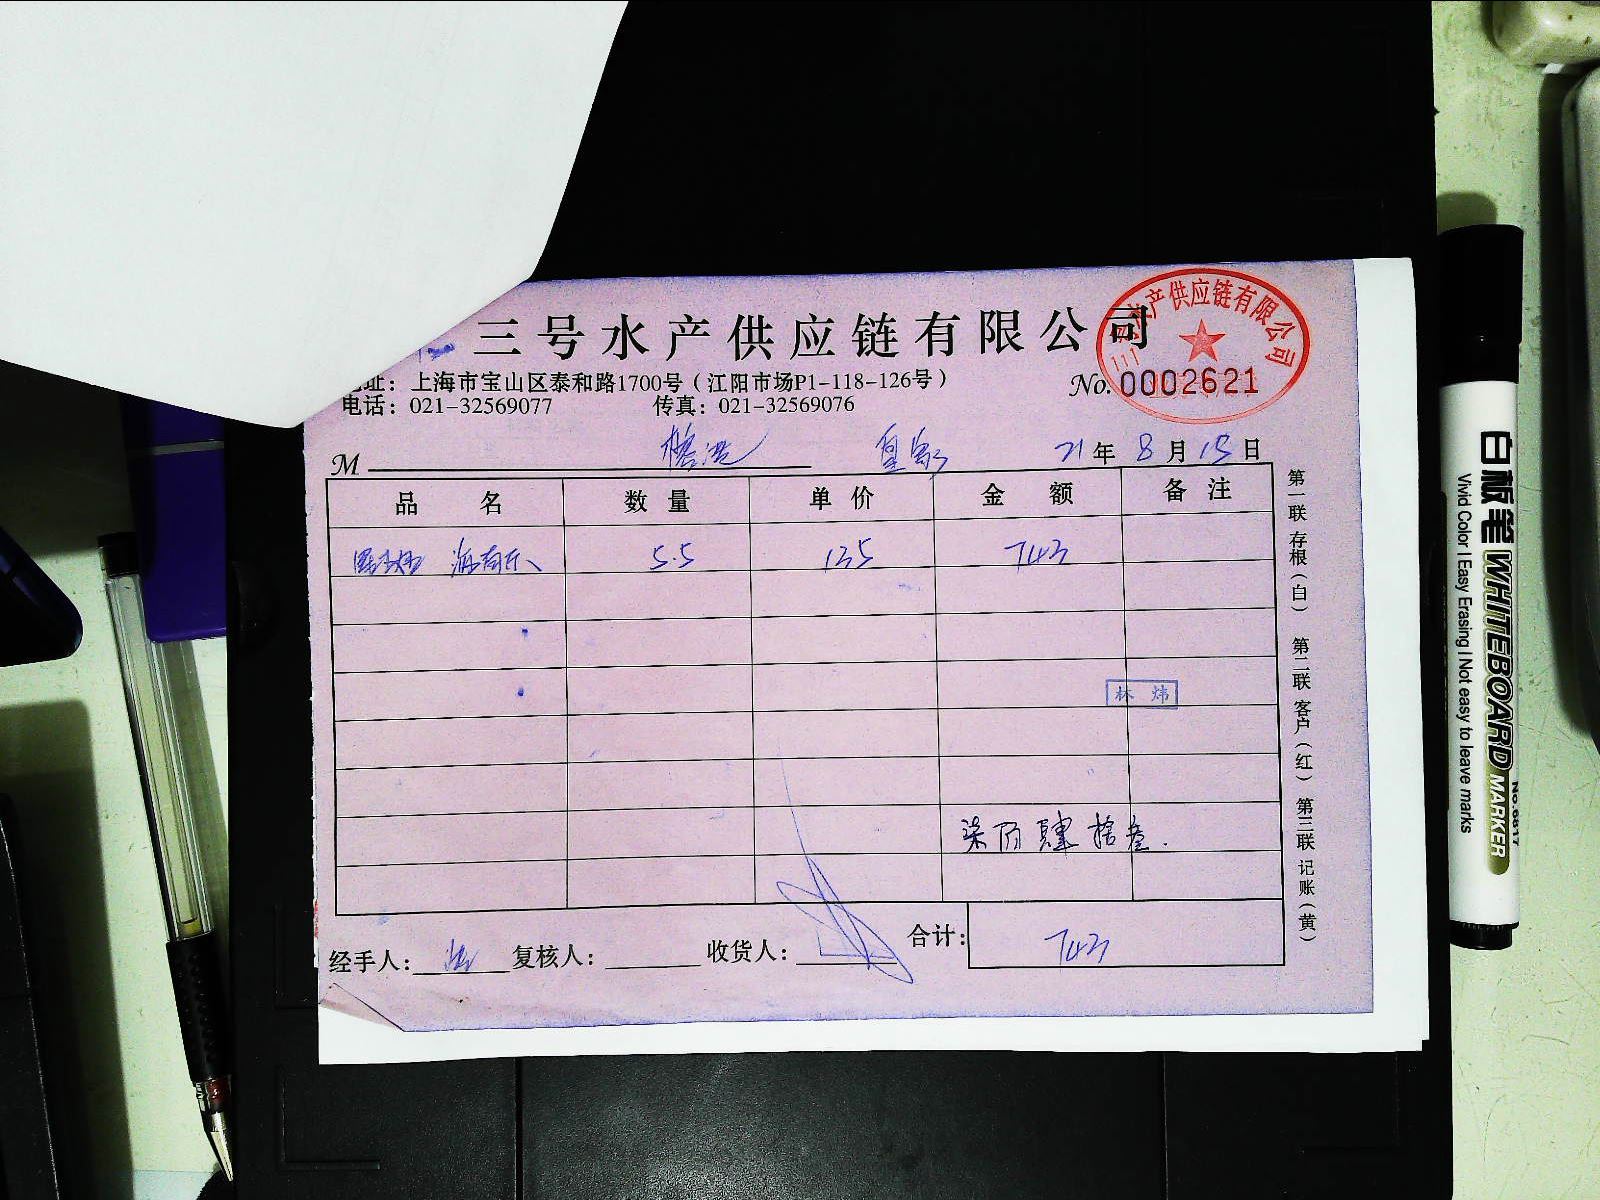 三号水产供应链有限公司
址：上海市宝山区泰和路1700号（江阳市场P1-118-126号）
电话：021-32569077 传真：021-32569076
No. 0002621
水产供应链有限公司
M 榕港 皇家 21年 8月 15日
品名 数量 单价 金额 备注
海南 5.5 135 743
林炜
柒百肆拾叁.
经手人： 复核人： 收货人： 合计： 743
第一联 存根（白） 第二联 客户（红） 第三联 记账（黄）
白板笔 WHITEBOARD MARKER No.6817
Vivid Color | Easy Erasing | Not easy to leave marks